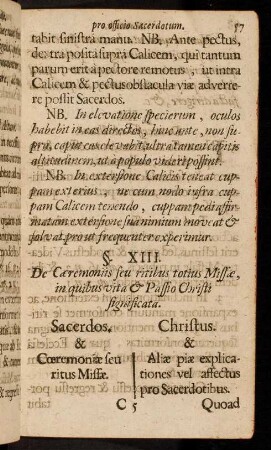 pro officio Sacerdotum. 57
tabit sinistra manu. NB. Ante pectus,
dextra posita supra Calicem, qui tantum
parum erit à pectore remotus, ut intra
Calicem & pectus obstacula viæ adverte-
re possit Sacerdos.
NB. In elevatione specierum, oculos
habebit in eas directos, tunc ante, non su-
pra, caput eas elevabit ultra tamen capitis
altitudinem, ut à populo videri possint.
NB. In extensione Calicis teneat cup-
pam exterius, ut cum nodo infra cup-
pam Calicem tenendo, cuppam pedi affir-
matam extensione sua nimium moveat &
solvat prout frequenter experimur.
§. XIII.
De Cæremoniis seu ritibus totius Missæ,
in quibus vita & Passio Christi
significata.
Sacerdos,
&
Cœremoniæ seu
ritus Missæ.
Christus.
&
Aliæ piæ explica-
tiones vel affectus
pro Sacerdotibus.
C 5 Quoad